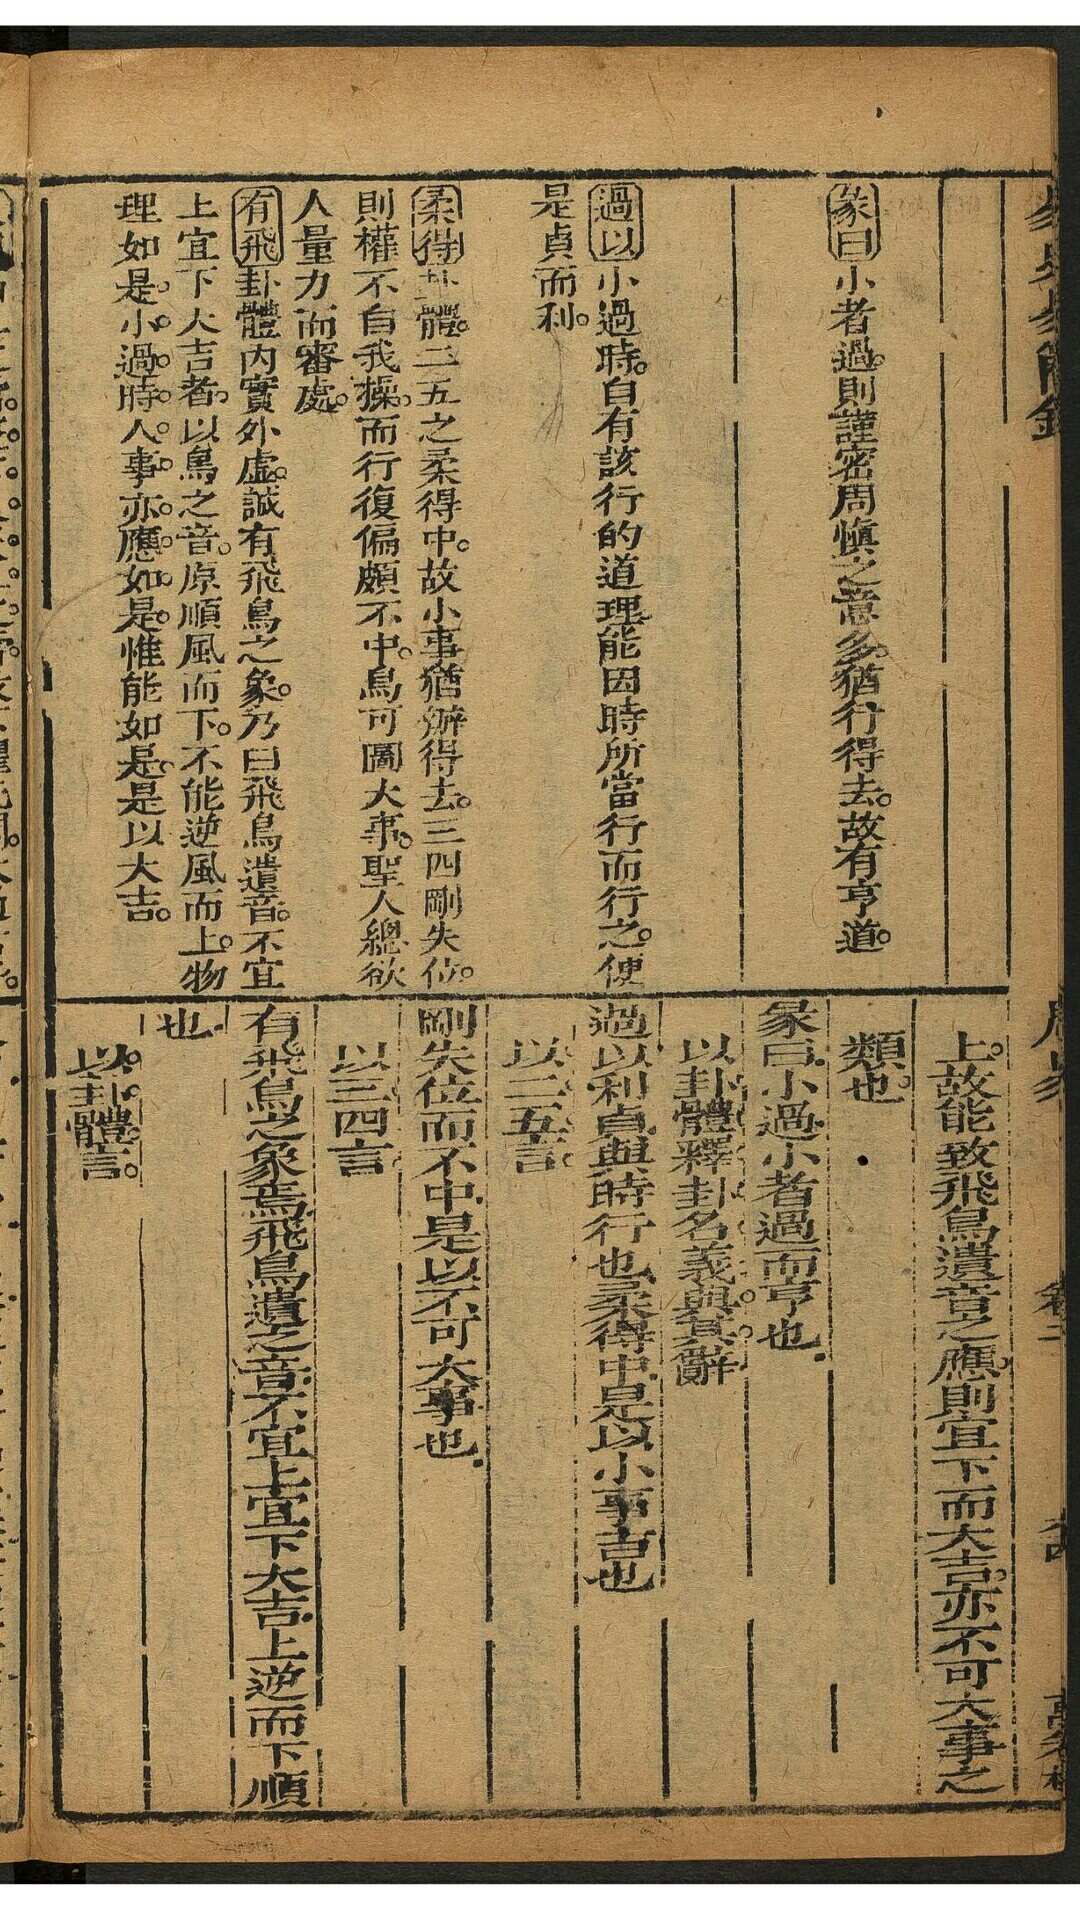 彖曰小者過則謹密周愼之意多猶行得去故有亨道
過以小過時自有該行的道理能因時所當行而行之便
是貞而利
柔得卦體二五之柔得中故小事猶辦得去三四剛失位
則權不自我操而行復偏頗不中烏可圖大事聖人總欲
人量力而審處
有飛卦體內實外虛誠有飛鳥之象乃曰飛鳥遺音不宜
上宜下大吉者以鳥之音原順風而下不能逆風而上物
理如是小過時人事亦應如是惟能如是是以大吉
上故能致飛鳥遺音之應則宜下而大吉亦不可大事之
類也
彖曰小過小者過而亨也
以卦體釋卦名義與其辭
過以利貞與時行也柔得中是以小事吉也
以二五言
剛失位而不中是以不可大事也
以三四言
有飛鳥之象焉飛鳥遺之音不宜上宜下大吉上逆而下順
也
以卦體言
周易